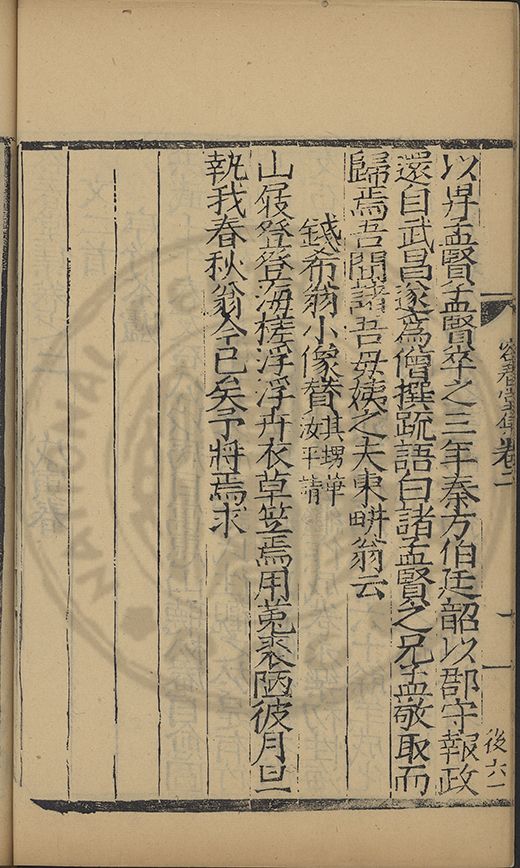 以畀孟賢孟賢卒之三年秦方伯廷韶以郡守報政
還自武昌遂為僧撰䟽語白諸孟賢之兄孟敬取而
歸焉吾聞諸吾母姨之夫東畊翁云
錢希翁小像贊其甥華汝平請
山屐登登海槎浮浮卉衣草笠焉用菟裘陋彼月旦
執我春秋翁今已矣予將焉求
容春堂集卷二
後六一